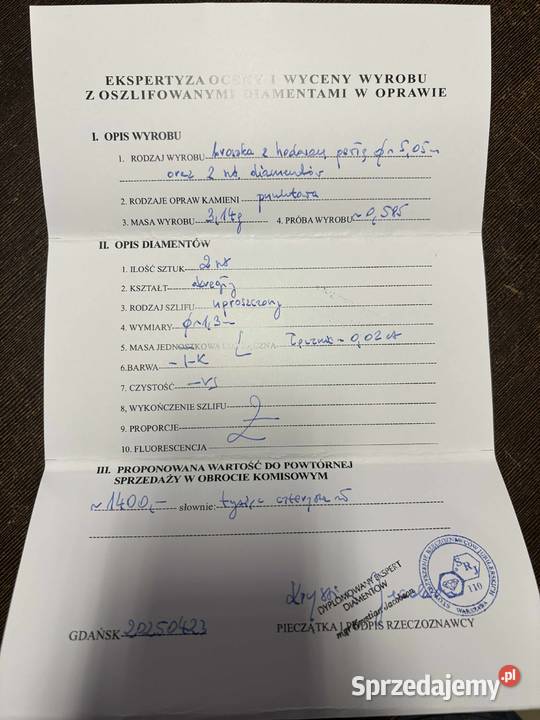 EKSPERTYZA OCENY I WYCENY WYROBU
Z OSZLIFOWANYMI DIAMENTAMI W OPRAWIE
I. OPIS WYROBU
1. RODZAJ WYROBU broszka z hodowaną perłą ϕ~5,05
oraz 2 szt. diamentów
2. RODZAJE OPRAW KAMIENI punktowa
3. MASA WYROBU 3,14g 4. PRÓBA WYROBU ~0,585
II. OPIS DIAMENTÓW
1. ILOŚĆ SZTUK 2 szt
2. KSZTAŁT okrągły
3. RODZAJ SZLIFU uproszczony
4. WYMIARY ϕ~1,3
5. MASA JEDNOSTKOWA ŁĄCZNA łącznie ~0,02 ct
6. BARWA -I-K
7. CZYSTOŚĆ -VS
8. WYKOŃCZENIE SZLIFU
9. PROPORCJE
10. FLUORESCENCJA
III. PROPONOWANA WARTOŚĆ DO POWTÓRNEJ
SPRZEDAŻY W OBROCIE KOMISOWYM
~1400,- słownie: tysiąc czterysta zł
DYPLOMOWANY EKSPERT
DIAMENTÓW
SRJ
110
WARSZAWA
GDAŃSK 20250423 PIECZĄTKA I PODPIS RZECZOZNAWCY
Sprzedajemy.pl